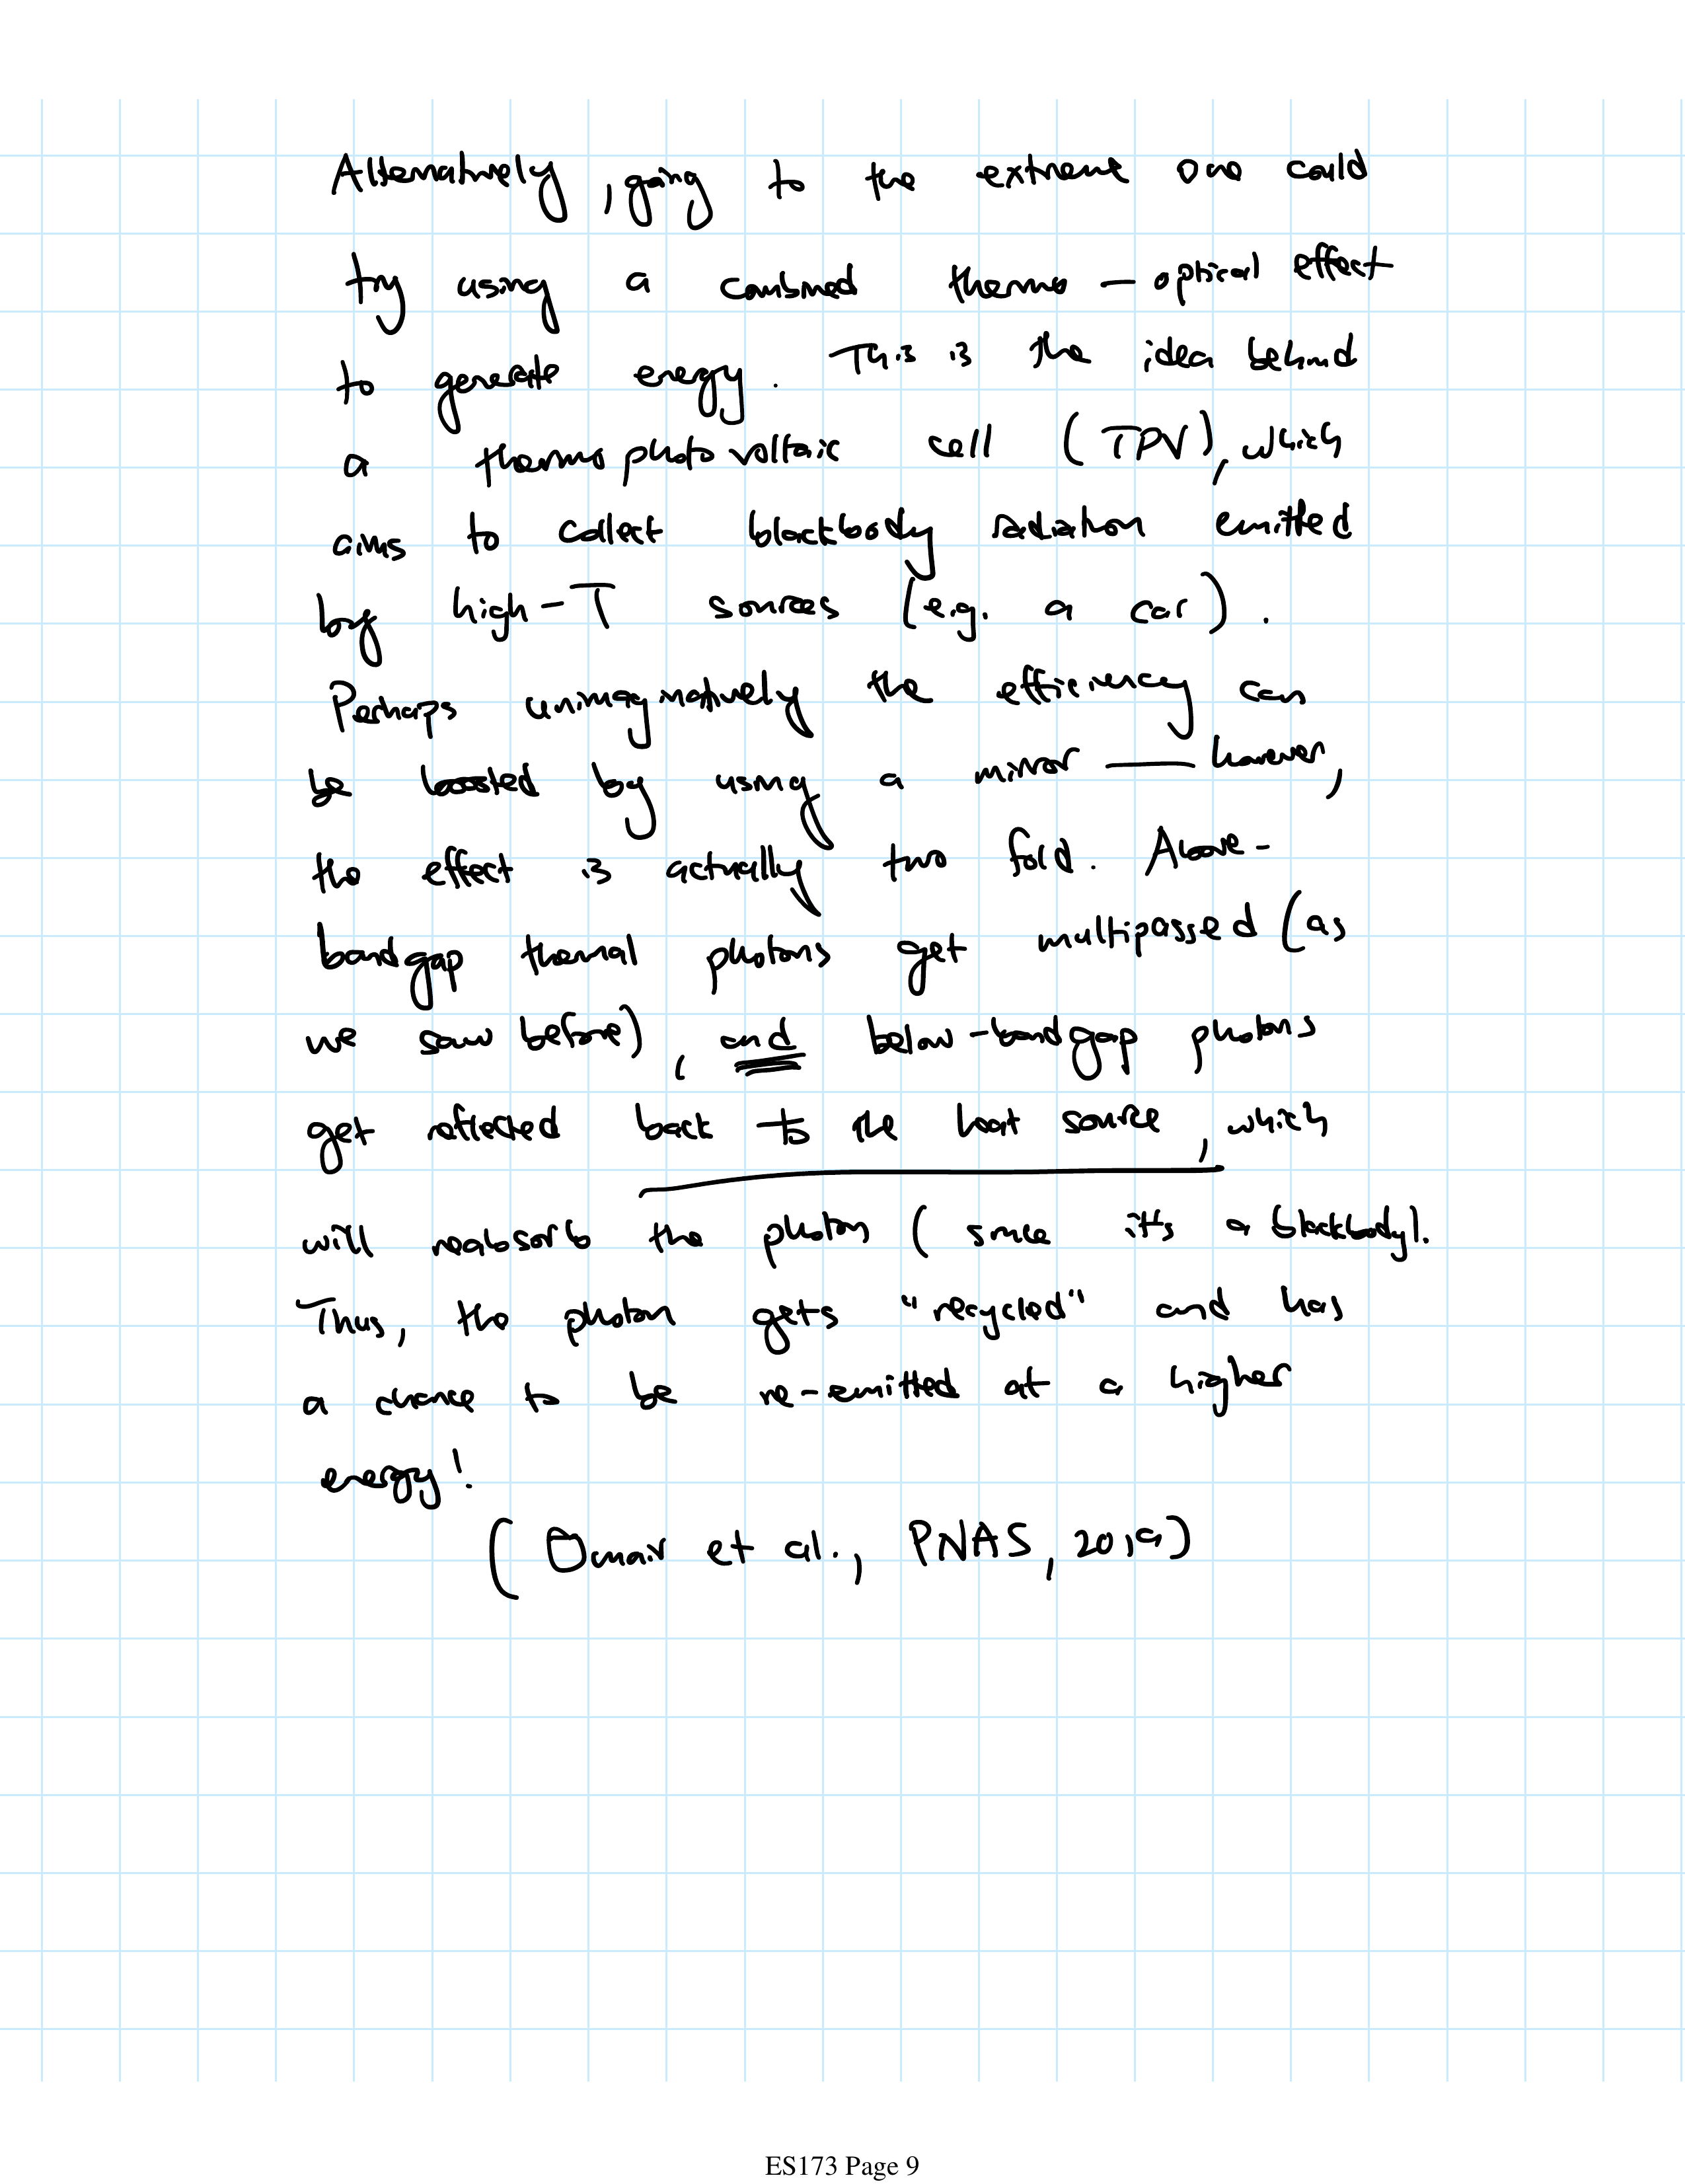 Alternatively, going to the extreme one could
try using a combined thermo - optical effect
to generate energy. This is the idea behind
a thermophotovoltaic cell (TPV), which
aims to collect blackbody radiation emitted
by high-T sources (e.g. a car).
Perhaps unimaginatively the efficiency can
be boosted by using a mirror — however,
the effect is actually two fold. Above-
bandgap thermal photons get multipassed (as
we saw before), and below-bandgap photons
get reflected back to the heat source, which
will reabsorb the photon (since it's a blackbody).
Thus, the photon gets "recycled" and has
a chance to be re-emitted at a higher
energy!
(Omair et al., PNAS, 2019)
ES173 Page 9